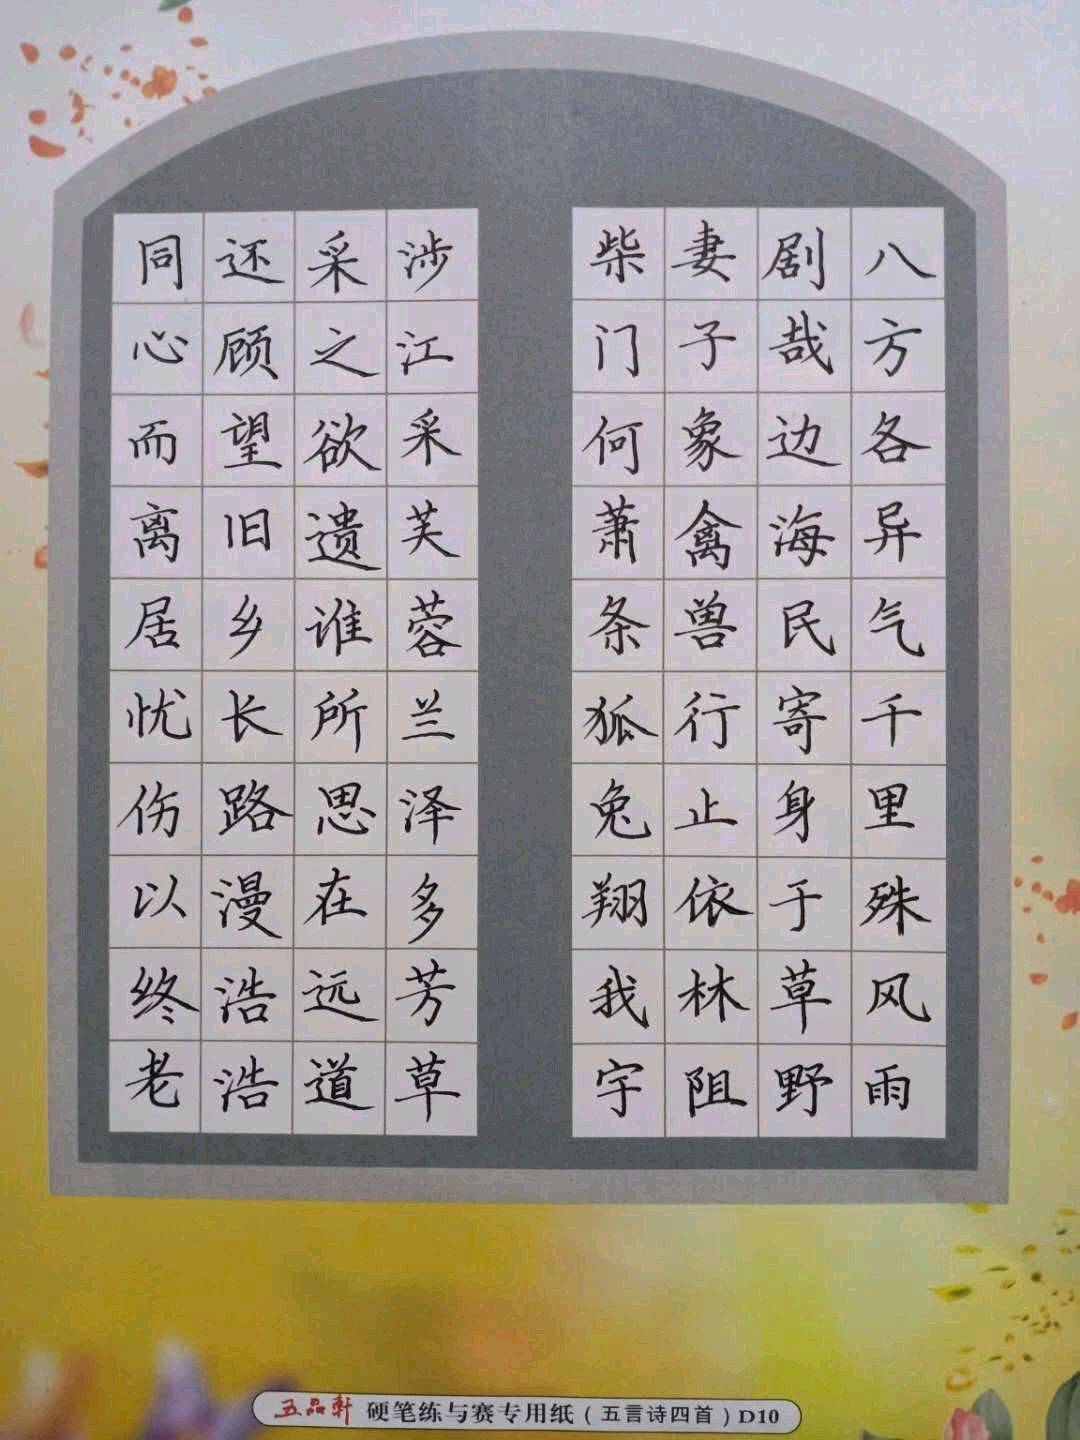 八方各异气千里殊风雨
剧哉边海民寄身于草野
妻子象禽兽行止依林阻
柴门何萧条狐兔翔我宇
涉江采芙蓉兰泽多芳草
采之欲遗谁所思在远道
还顾望旧乡长路漫浩浩
同心而离居忧伤以终老
五品轩 硬笔练与赛专用纸（五言诗四首）D10